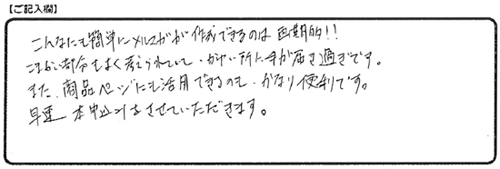 【ご記入欄】
こんなにも簡単にメルマガが作成できるのは画期的!!
こまかい部分もよく考えられていて、かゆい所に手が届き過ぎです。
また、商品ページにも活用できるのも、かなり便利です。
早速、本申込みをさせていただきます。